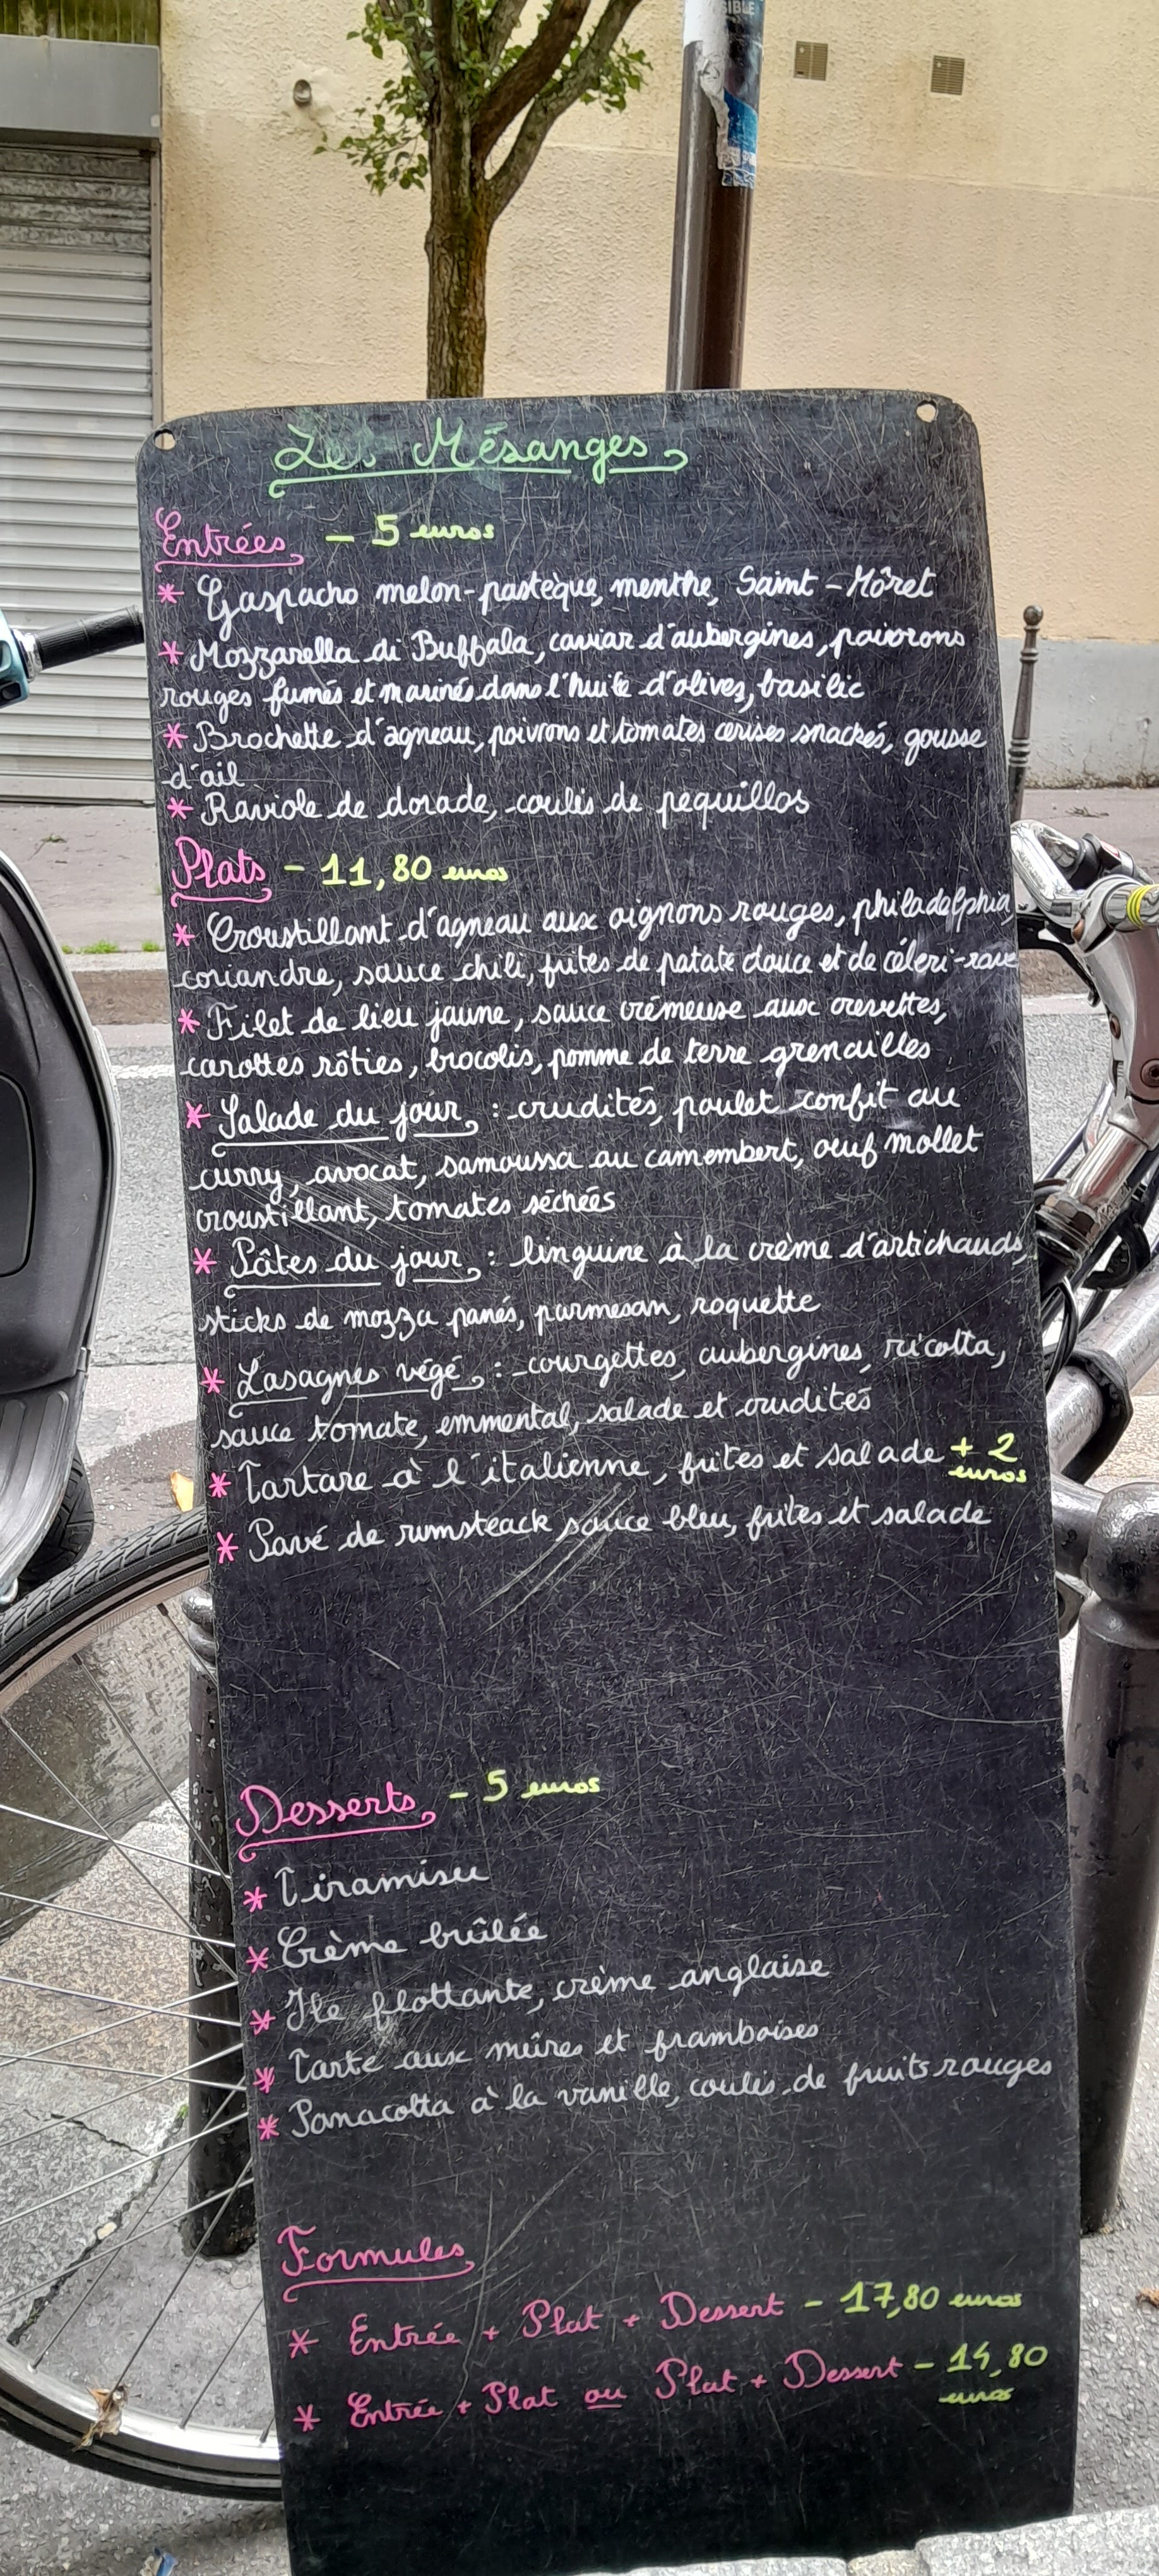 SIBLE
Les Mésanges
Entrées - 5 euros
* Gaspacho melon-pastèque, menthe, Saint-Môret
* Mozzarella di Buffala, caviar d'aubergines, poivrons
rouges fumés et marinés dans l'huile d'olives, basilic
* Brochette d'agneau, poivrons et tomates cerises snackés, gousse
d'ail
* Raviole de dorade, coulis de pequillos
Plats - 11,80 euros
* Croustillant d'agneau aux oignons rouges, philadelphia,
coriandre, sauce chili, frites de patate douce et de céleri-rave
* Filet de lieu jaune, sauce crémeuse aux crevettes,
carottes rôties, brocolis, pomme de terre grenailles
* Salade du jour : crudités, poulet confit au
curry, avocat, samoussa au camembert, oeuf mollet
croustillant, tomates séchées
* Pâtes du jour : linguine à la crème d'artichauds,
sticks de mozza panés, parmesan, roquette
* Lasagnes végé : courgettes, aubergines, ricotta,
sauce tomate, emmental, salade et crudités
* Tartare à l'italienne, frites et salade + 2
euros
* Pavé de rumsteack sauce bleu, frites et salade
Desserts - 5 euros
* Tiramisu
* Crème brûlée
* Ile flottante, crème anglaise
* Tarte aux mûres et framboises
* Panacotta à la vanille, coulis de fruits rouges
Formules
* Entrée + Plat + Dessert - 17,80 euros
* Entrée + Plat ou Plat + Dessert - 14,80
euros